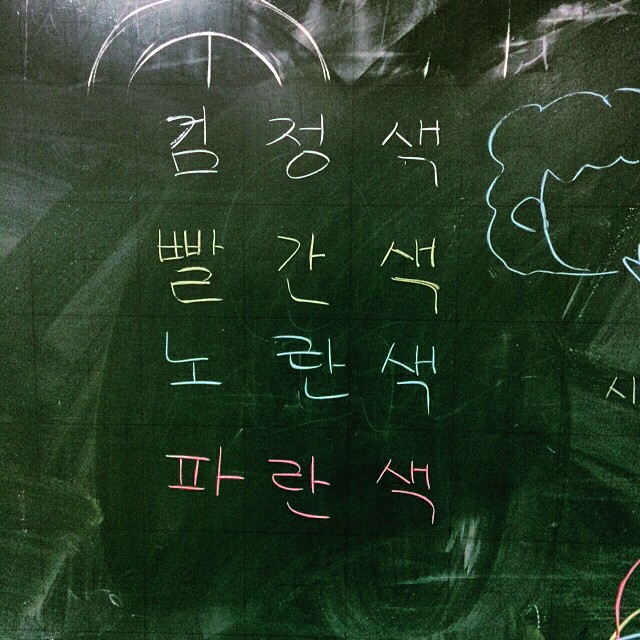 검정색
빨간색
노란색
파란색
시